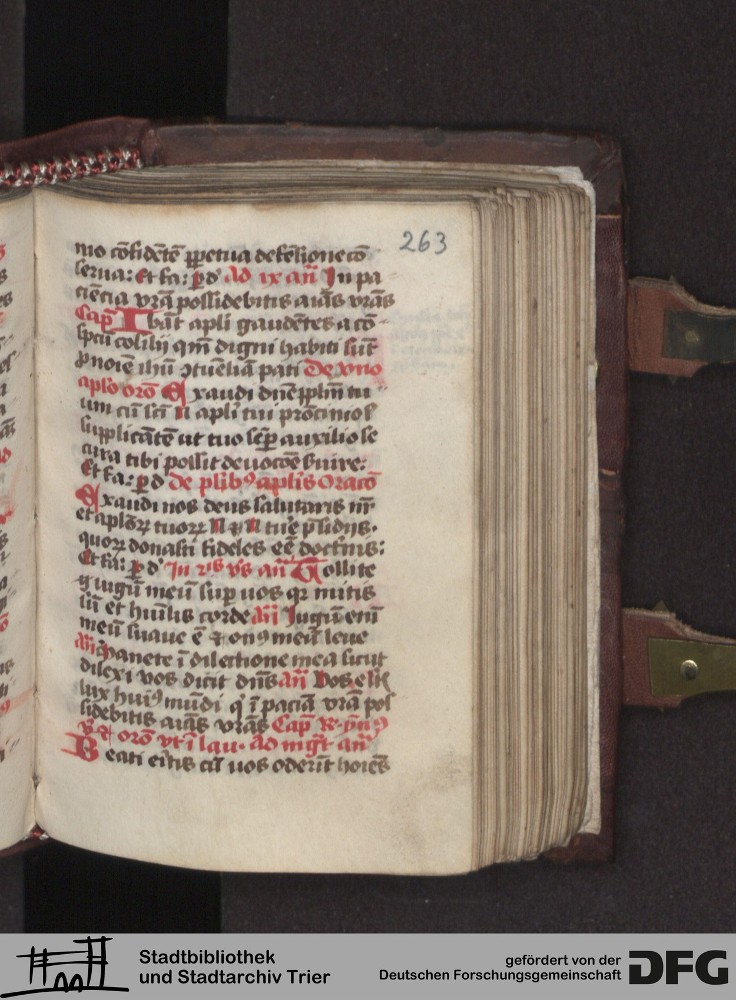 263
mo cōfidētē ꝑpetua defēsione cō
serua: Et fa: ꝑ d' Ad ix añ In pa
ciēcia vr̄a possidebitis aīas vr̄as
Cap̄ Ibāt apl̓i gaudētes a cō
spcū cōsilij qm̄ digni habiti sūt
ꝓ noīe ihū ꝯtūeliā pati De vno
aplo orō Exaudi dn̄e pplm̄ tu
um cū sc̄i N apl̓i tui
supplicātē ut tuo sēꝑ auxilio se
cura tibi possit deuocōe ẜuire:
Et fa: ꝑ d De plibꝰ aplis Oracō
Exaudi nos deus salutaris nr̄
et aplōꝝ tuoꝝ N ⁊ N tue p̄sidijs.
quoꝝ donasti fideles eē doctr̄nis:
Et fa: ꝑ d' In vs añ Tollite
iugū meū suꝑ uos qꝛ mitis
sū et huīlis corde añ Iugū enī
meū suaue ē ⁊ onꝰ meū leue
añ Manete ī dilectione mea sicut
dilexi vos dicit dn̄s añ Vos estis
lux huiꝰ mūdi q' ī paciā vrām pos
sidebitis aīas vr̄as Cap̄ R̄ ymꝰ
vꝰ et orō vt ī lau. Ad mgt̄ añ
Beati eritis cū uos oderīt hoīes
Stadtbibliothek
und Stadtarchiv Trier
gefördert von der
Deutschen Forschungsgemeinschaft
DFG